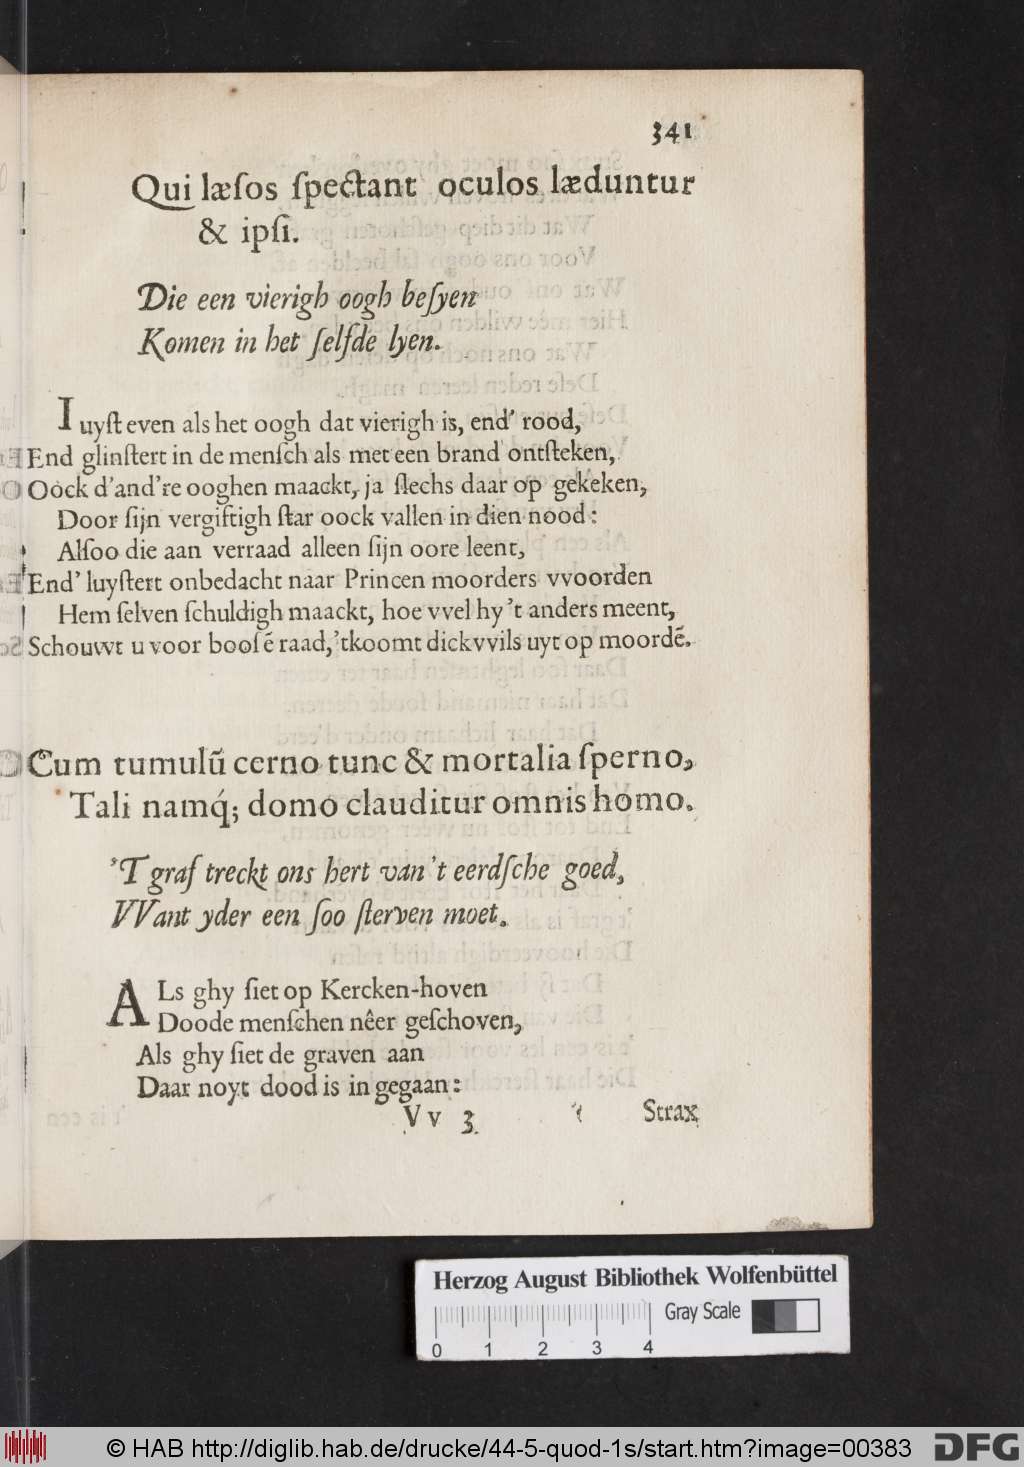 341
Qui læſos ſpectant oculos læduntur
& ipſi.
Die een vierigh oogh beſyen
Komen in het ſelfde lyen.
Iuyſt even als het oogh dat vierigh is, end' rood,
End glinſtert in de menſch als met een brand ontſteken,
Oock d'and're ooghen maackt, ja ſlechs daar op gekeken,
Door ſijn vergiftigh ſtar oock vallen in dien nood:
Alſoo die aan verraad alleen ſijn oore leent,
End' luyſtert onbedacht naar Princen moorders vvoorden
Hem ſelven ſchuldigh maackt, hoe vvel hy 't anders meent,
Schouwt u voor booſẽ raad, 'tkoomt dickvvils uyt op moordẽ.
Cum tumulũ cerno tunc & mortalia ſperno,
Tali namq́; domo clauditur omnis homo.
'T graf treckt ons hert van 't eerdſche goed,
VVant yder een ſoo ſterven moet.
ALs ghy ſiet op Kercken-hoven
Doode menſchen nêer geſchoven,
Als ghy ſiet de graven aan
Daar noyt dood is in gegaan:
Vv 3 Strax
Herzog August Bibliothek Wolfenbüttel
Gray Scale
0 1 2 3 4
© HAB http://diglib.hab.de/drucke/44-5-quod-1s/start.htm?image=00383 DFG